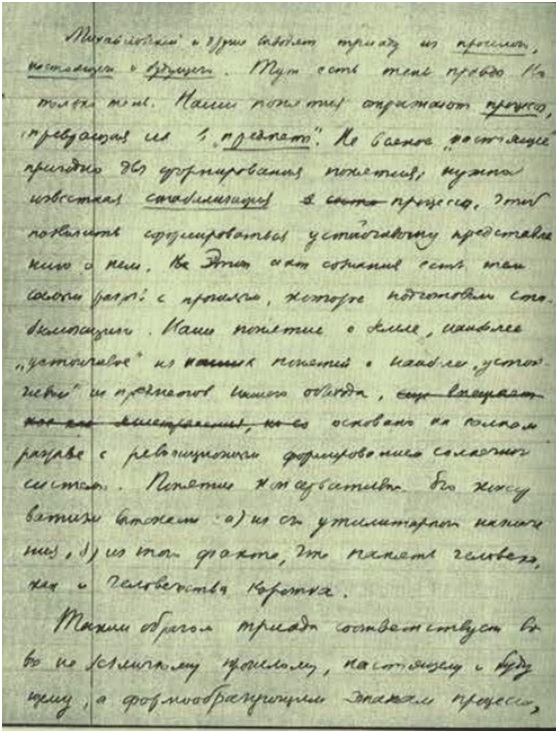 Михайловский и другие выводят триаду из прошлого,
настоящего и будущего. Тут есть тень правды. Но
только тень. Наши понятия отражают процесс,
превращая их в „предметы". Не всякое „настоящее
пригодно для формирования понятия, нужна
известная стабилизация процесса, чтоб
позволить сформироваться устойчивому представле
нию о нем. Этот акт сознания есть тем
самым разрыв с прошлым, которое подготовило ста
билизацию. Наше понятие о земле, наиболее
„устойчивое" из понятий о наиболее „устой
чивом" из предметов нашего обихода,
основано на полном
разрыве с революционным формированием солнечной
системы. Понятие консервативно. Его консер
ватизм вытекает: а) из его утилитарного назначе
ния, б) из того факта, что память человека,
как и человечества коротка.
Таким образом триада соответствует
не безличному прошлому, настоящему и буду
щему, а формообразующим этапам процесса,